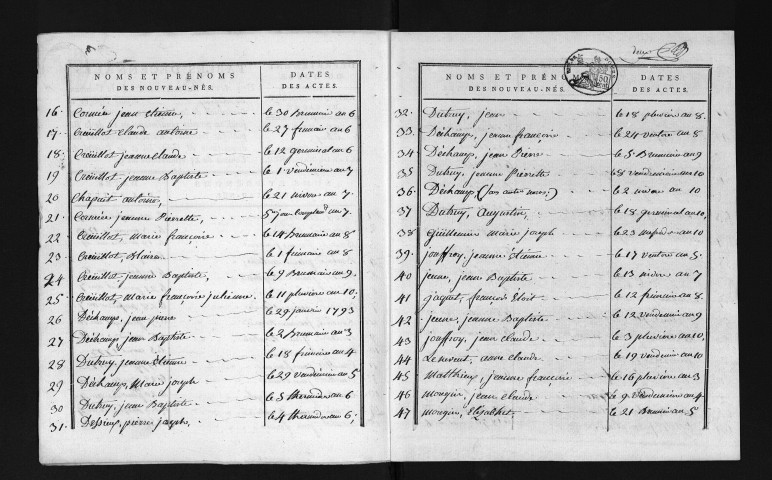 NOMS ET PRÉNOMS DES NOUVEAU-NÉS. DATES DES ACTES.
16. Cornier jean Etienne, le 30 Brumaire an 6
17. Creuillot claude antoine le 27 frimaire an 6
18. Creuillot jeanne claude le 12 germinal an 6
19 Creuillot jeanne Baptiste le 1. vendemiaire an 7
20 Chapuit antoine, le 21 nivose an 7.
21. Cornier jeanne Pierrette, 5 jour complem. an 7.
22 Creuillot, Marie françoise le 14 Brumaire an 8
23 Creuillot, Blaise le 1 frimaire an 8
24 Creuillot jeanne Baptiste, le 9 Brumaire an 9.
25. Creuillot, Marie françoise julienne. le 11 pluviose an 10,
26 Dechamps, jean pierre le 29 janvier 1793
27 Dechamps jean Baptiste le 2 Brumaire an 3
28 Dutruy, jeanne Etienne le 18 frimaire an 4
29 Dechamps, Marie joseph le 29 vendemiaire an 5
30 Dutruy, jean Baptiste le 5 thermidor an 6
31. pierre joseph, le 4 thermidor an 6.
NOMS ET PRÉNOMS DES NOUVEAU-NÉS. DATES DES ACTES.
32. Dutruy, jean le 18 pluviose an 8.
33. Dechamps, jeanne françoise le 24 ventose an 8
34 Dechamps, jean Pierre le 5 Brumaire an 9
35 Dutruy, jeanne Pierrette 8 vendemiaire an 10
36. Dechamps (sans autre noms,) le 2 nivose an 10
37 Dutruy, Augustin, le 18 germinal an 10,
38 Guillemin marie joseph le 23 an 10
39. jouffroy, jeanne Etienne le 17 ventose an 5.
40 jeune, jean Baptiste le 13 nivose an 7
41 jaquet, françois Eloit le 12 frimaire an 8.
42 jeune, jeanne Baptiste le 12 vendemiaire an 9
43 jouffroy, jean claude le 3 pluviose an 10,
44 anne claude le 19 vendemiaire an 10
45 Matthieu, jeanne françoise le 16 pluviose an 3
46 mongin, jean claude le 9 vendemiaire an 4
47 mongin, Elizabeth le 21 Brumaire an 5